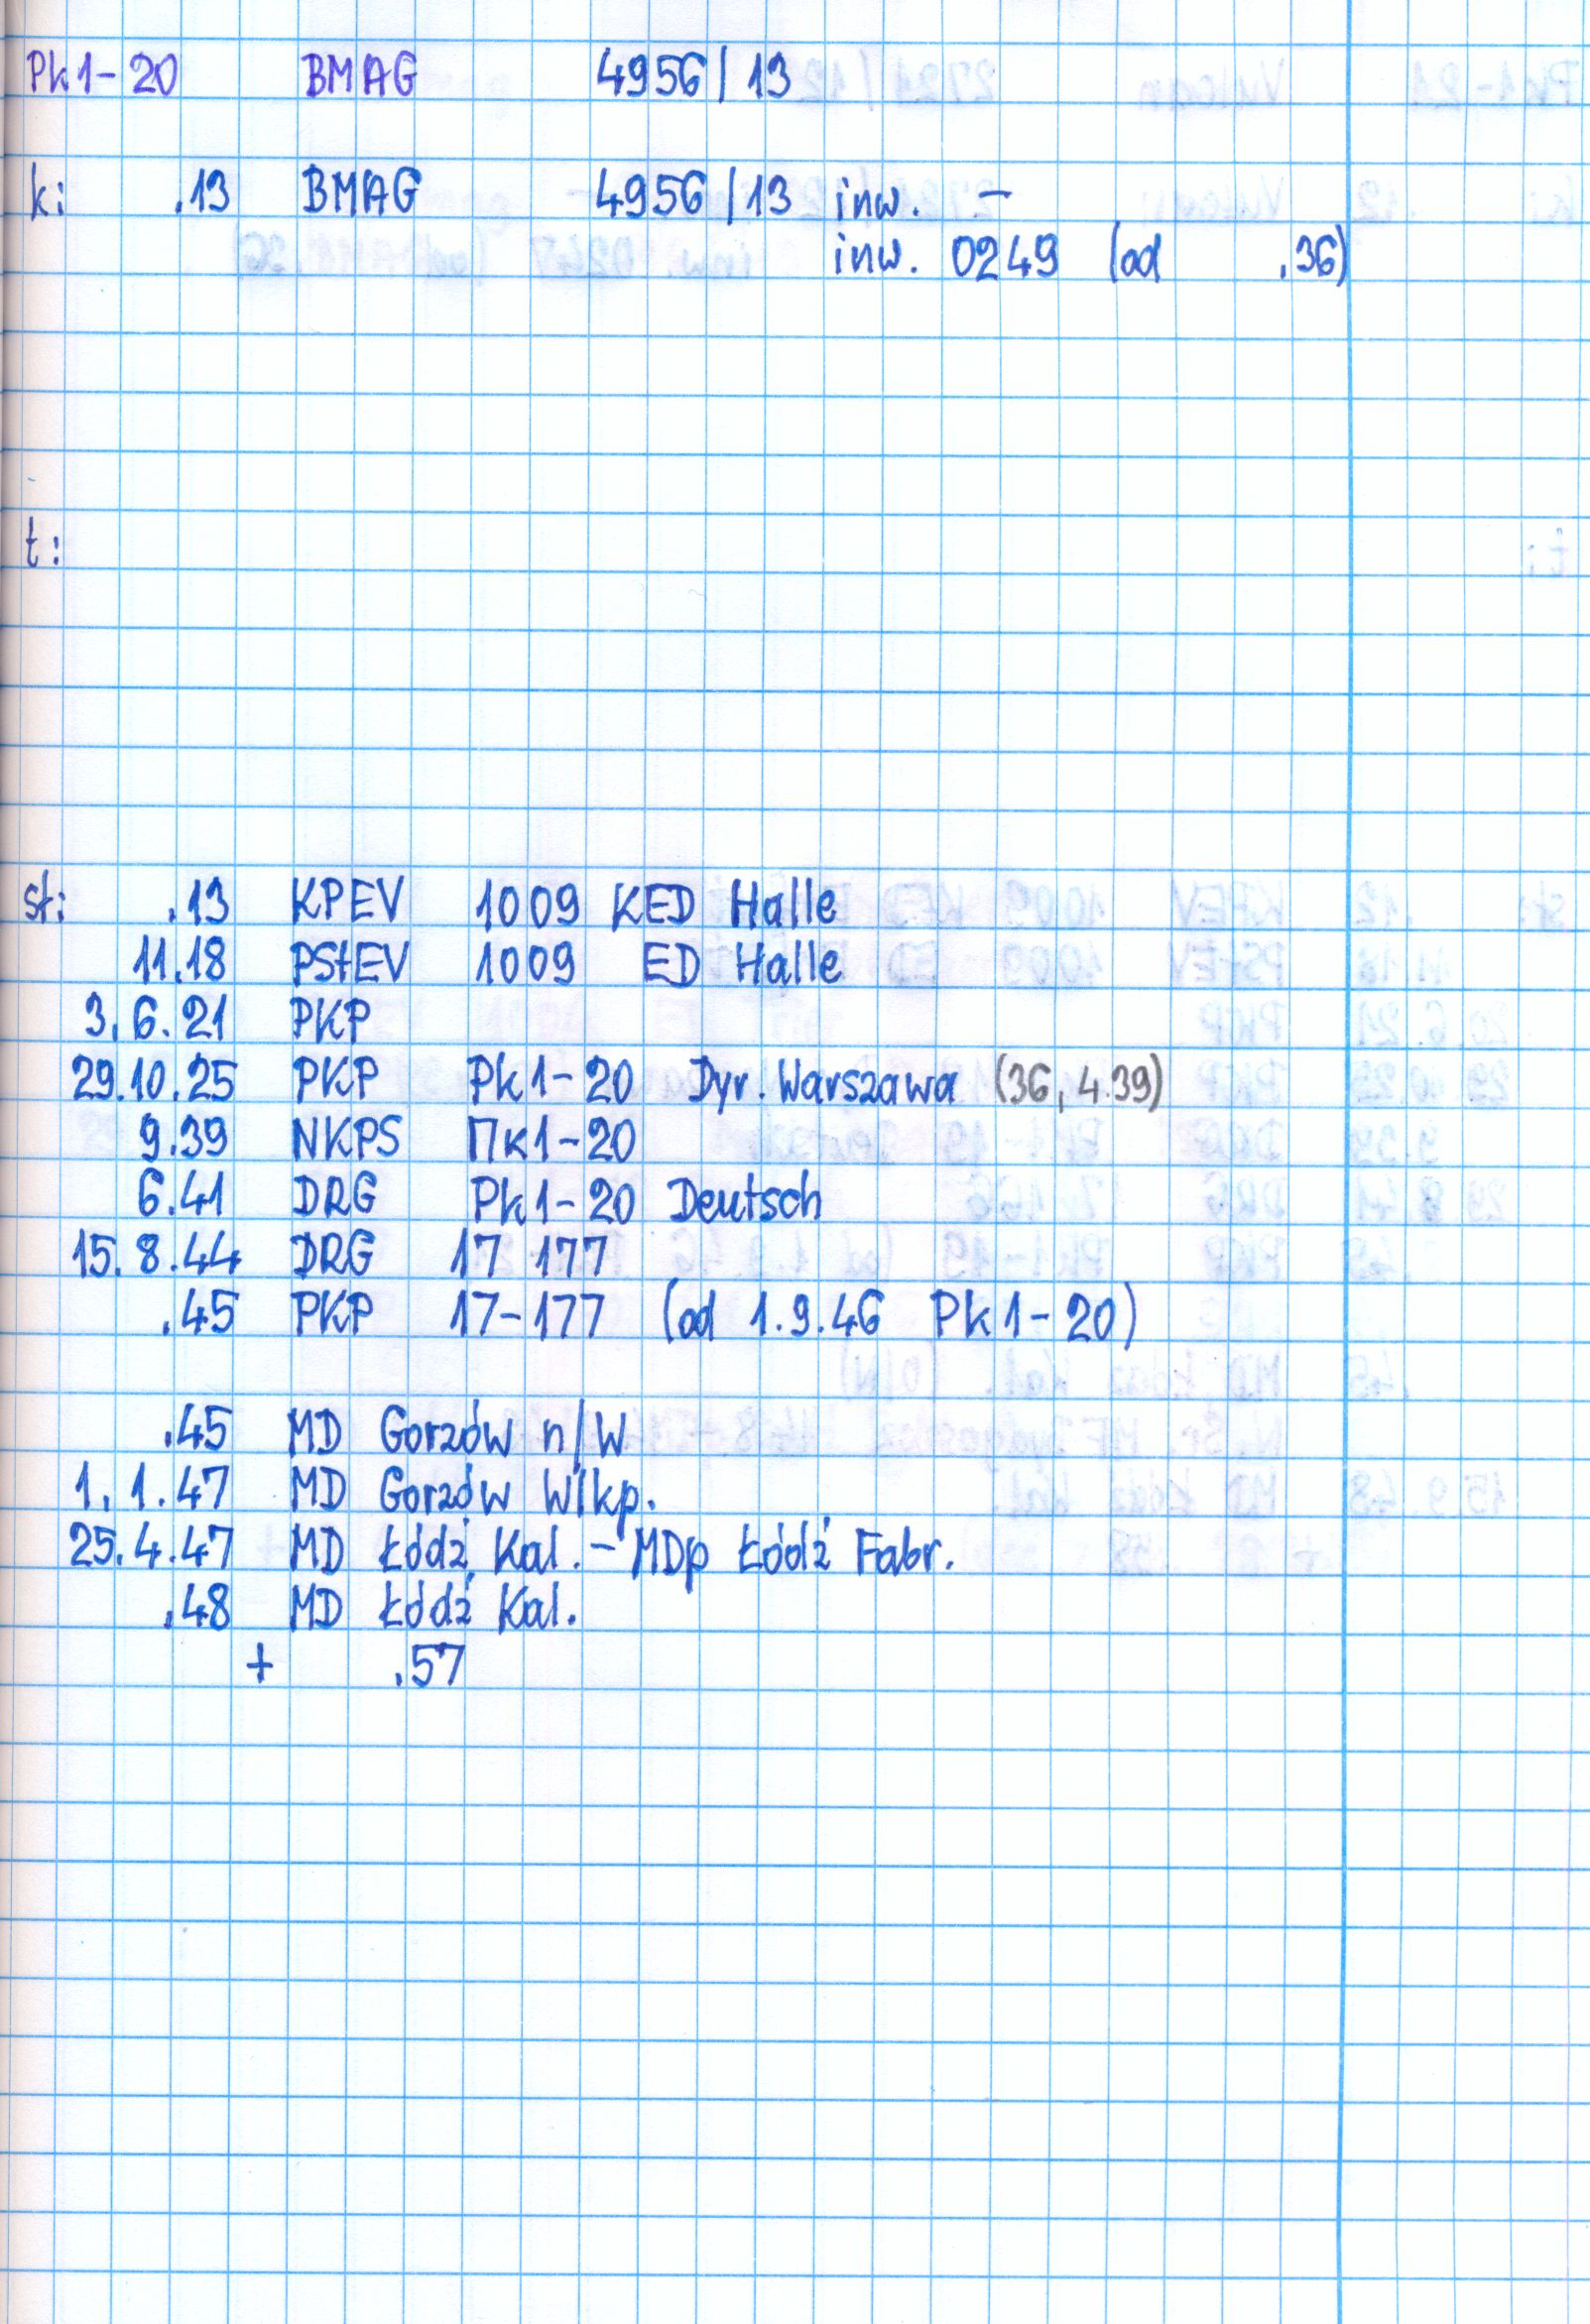 Pk1-20 BMAG 4956/13
k: .13 BMAG 4956/13 inw. –
inw. 0249 (od .36)
t:
st: .13 KPEV 1009 KED Halle
11.18 PStEV 1009 ED Halle
3.6.21 PKP
29.10.25 PKP Pk1-20 Dyr. Warszawa (36, 4.39)
9.39 NKPS Пк1-20
6.41 DRG Pk1-20 Deutsch
15.8.44 DRG 17 177
.45 PKP 17-177 (od 1.9.46 Pk1-20)
.45 MD Gorzów n/W
1.1.47 MD Gorzów Wlkp.
25.4.47 MD Łódź Kal. – MDp Łódź Fabr.
.48 MD Łódź Kal.
+ .57